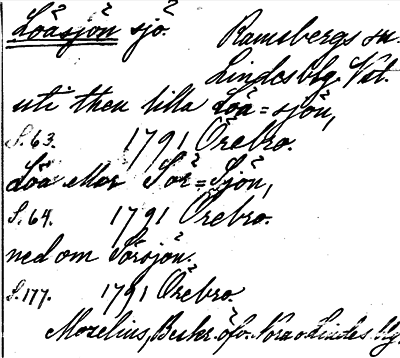 Löåsjön sjö. Ramsbergs sn.
Lindesbg. Vst.
uti then lilla Löa = sjön,
S. 63. 1791 Örebro.
Löa eller Sör = Sjön,
S. 64. 1791 Örebro.
ned om Sörsjön.
S. 177. 1791 Örebro.
Morelius, Beskr. öfv. Nora o Lindes bg.